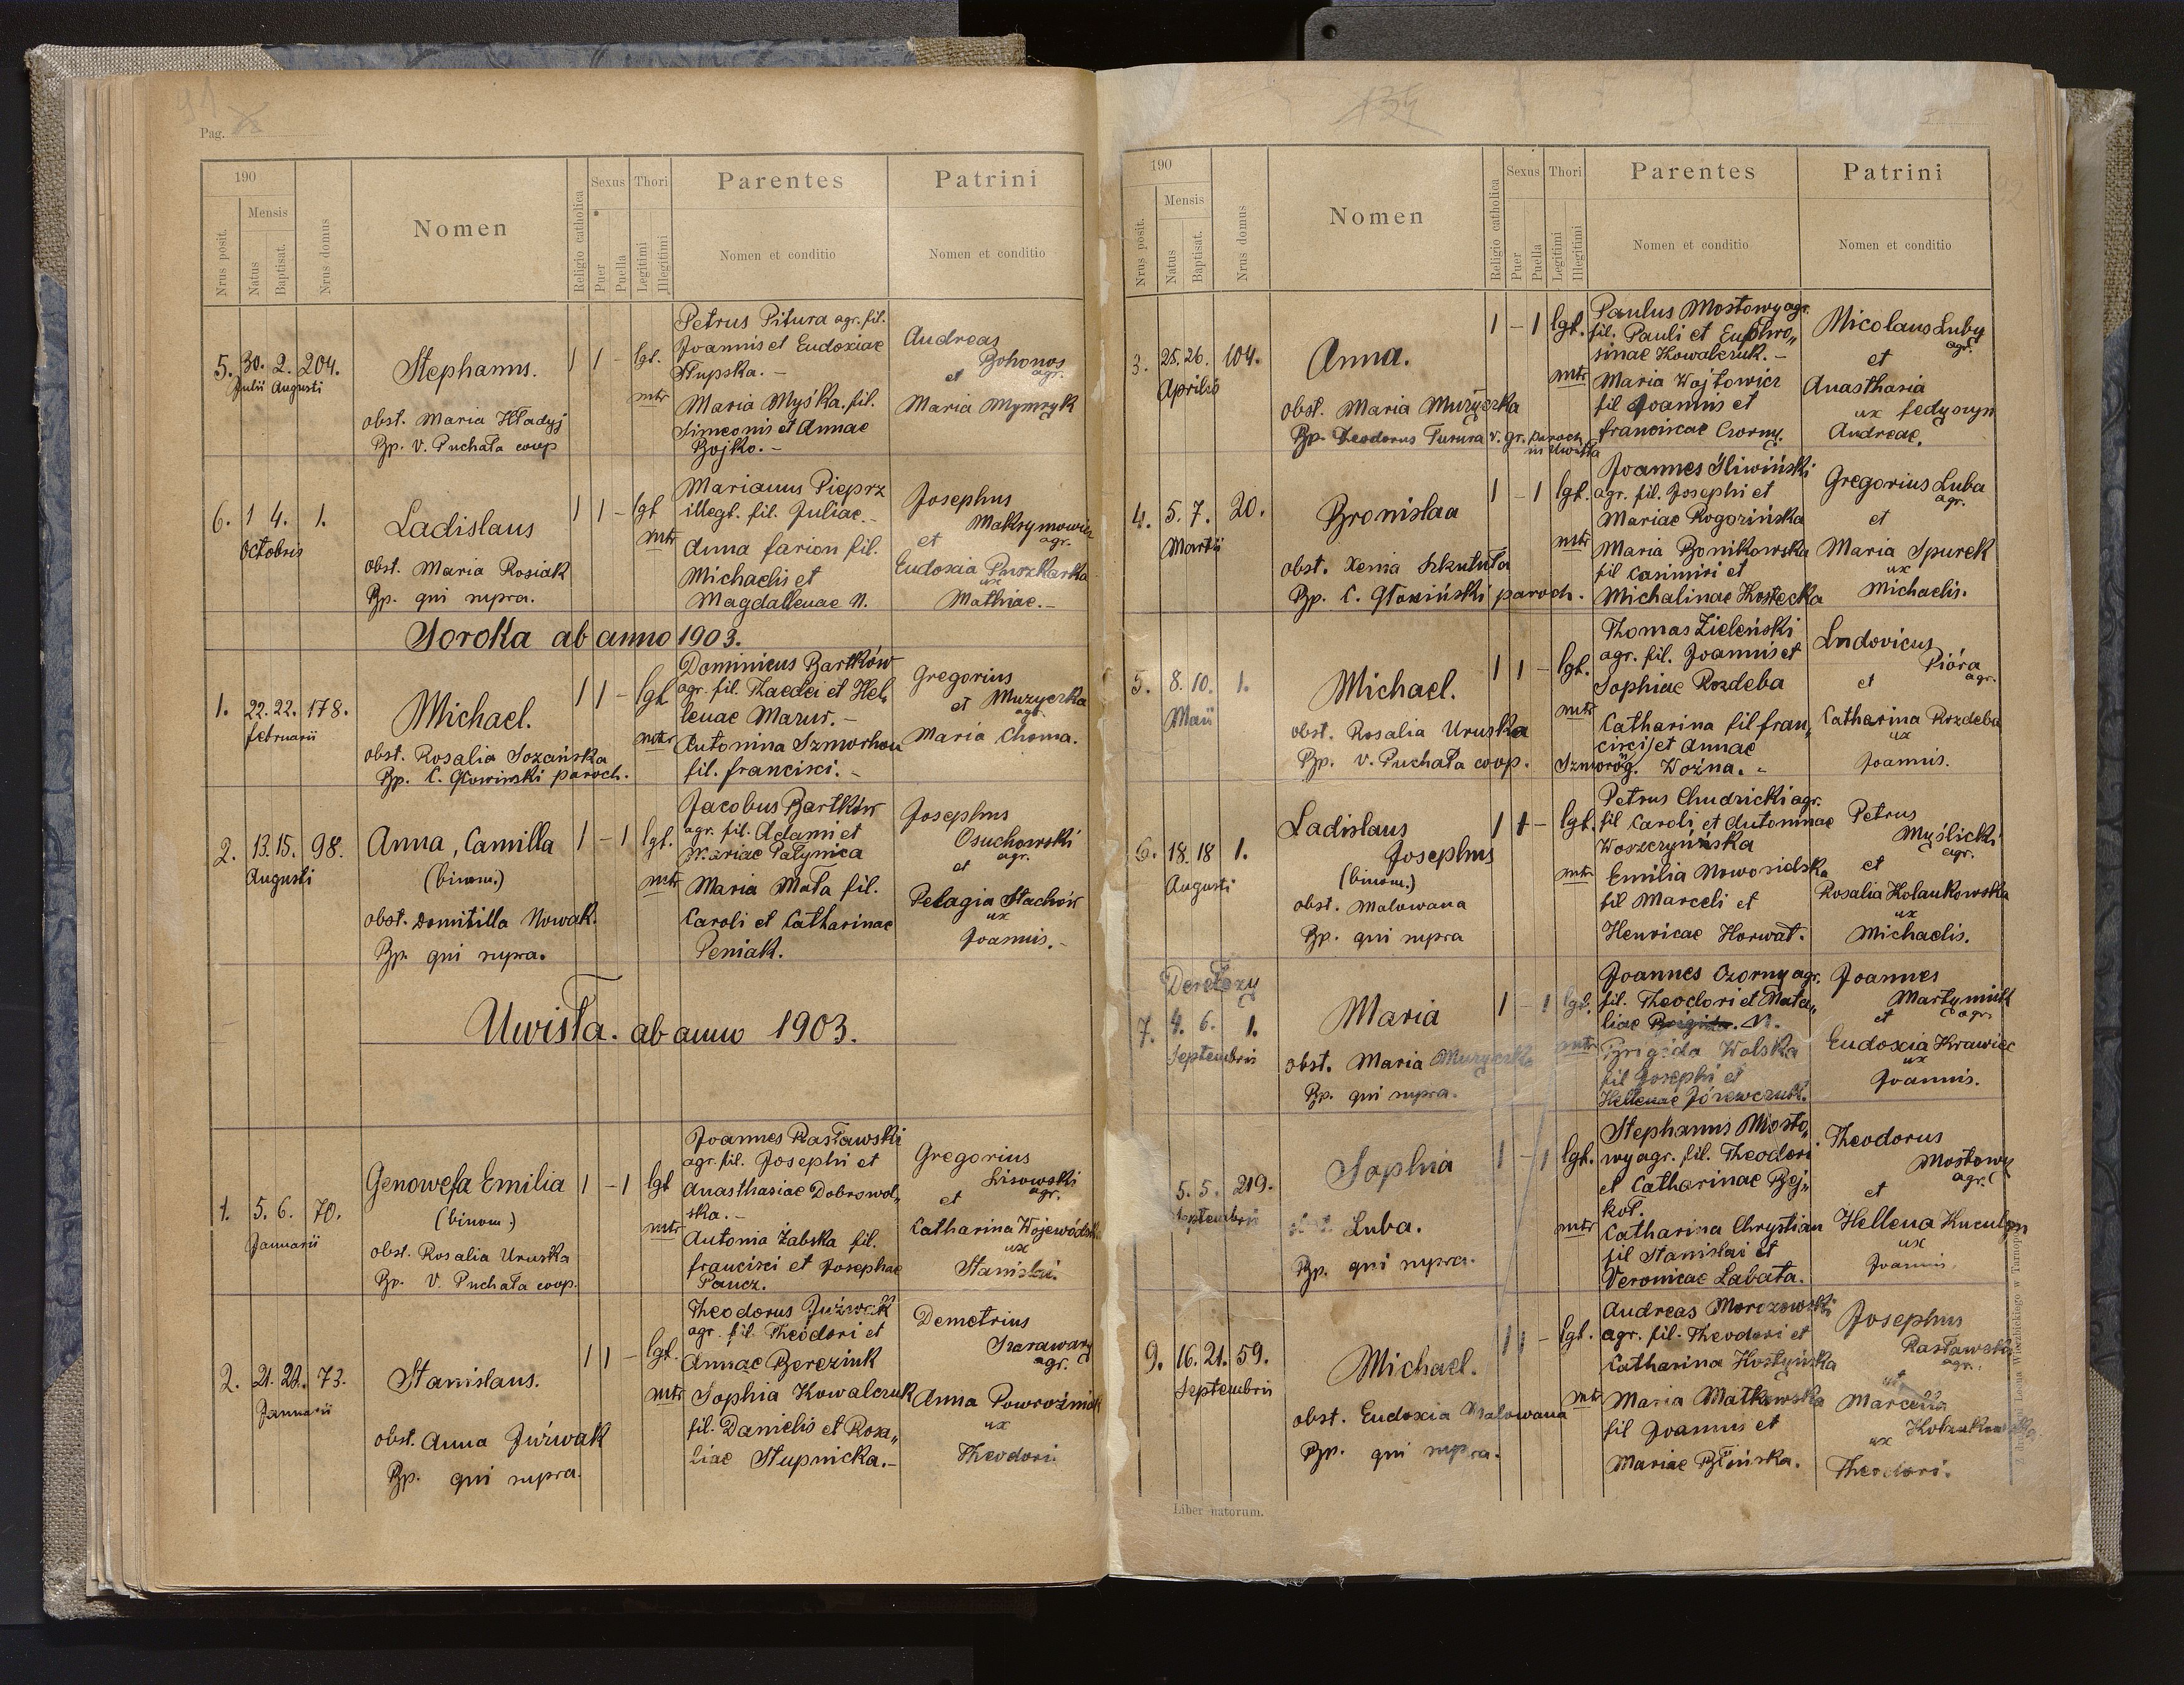 91
Pag.
190
Nrus posit.
Mensis
Natus
Baptisat.
Nrus domus
Nomen
Religio catholica
Sexus
Puer
Puella
Thori
Legitimi
Illegitimi
Parentes
Nomen et conditio
Patrini
Nomen et conditio
5. 30. 2. 204.
Julii Augusti
Stephanus.
obst. Maria Kładyj
Bp. V. Puchała coop
1 1 - lgt.
mtr
Petrus Pitura agr. fil.
Joannis et Eudoxiae
Słupska. -
Maria Myśka. fil.
Simeonis et Annae
Bojko. -
Andreas
Bohonos
agr.
et
Maria Mymryk
6. 1 4. 1.
Octobris
Ladislaus
obst. Maria Rosiak
Bp. qui supra.
1 1 - lgt
mtr
Marianus Pieprz
illegt. fil. Juliae. -
Anna Farion fil.
Michaelis et
Magdallenae N.
Josephus
Maksymowicz
agr.
et
Eudoxia Puszkarska
ux
Mathiae. -
Soroka ab anno 1903.
1. 22. 22. 178.
Februarii
Michael.
obst. Rosalia Sozańska
Bp. C. Głowiński paroch.
1 1 - lgt
mtr
Dominicus Bartków
agr. fil. Thadei et Hel„
lenae Marur. -
Antonina Szmorhou
fil. Francisci. -
Gregorius
et Muzyczka
agr.
Maria Choma.
2. 13. 15. 98.
Augusti
Anna, Camilla
(binom.)
obst. Domitilla Nowak.
Bp. qui supra.
1 - 1 lgt.
mtr
Jacobus Bartków
agr. fil. Adami et
Mariae Pałynica
Maria Mała fil.
Caroli et Catharinae
Peniak.
Josephus
Osuchowski
agr.
et
Pelagia Stachów
ux
Joannis. -
Uwisła. ab anno 1903.
1. 5. 6. 70.
Januarii
Genowefa Emilia
(binom.)
obst. Rosalia Uruska
Bp. V. Puchała coop.
1 - 1 lgt
mtr
Joannes Rasławski
agr. fil. Josephi et
Anasthasiae Dobrowol„
ska. -
Antonia Żabska fil.
Francisci et Josephae
Paucz.
Gregorius
Lisowski
agr.
et
Catharina Wojewódzka
ux
Stanislai.
2. 21. 22. 73.
Januarii
Stanislaus.
obst. Anna Juźwak
Bp. qui supra.
1 1 - lgt.
mtr
Theodorus Juźwak
agr. fil. Theodori et
Annae Bereziuk
Sophia Kowalczuk
fil. Danielis et Rosa„
liae Stupnicka. -
Demetrius
Szarawary
agr.
Anna Powroźniak
ux
Theodori.
135
190
Nrus posit.
Mensis
Natus
Baptisat.
Nrus domus
Nomen
Religio catholica
Sexus
Puer
Puella
Thori
Legitimi
Illegitimi
Parentes
Nomen et conditio
Patrini
Nomen et conditio
3. 25. 26. 104.
Aprilis
Anna.
obst. Maria Muzyczka
Bp. Theodorus Turura v. gr. paroch
in Uwisła
1 - 1 lgt.
mtr
Paulus Mostowy agr.
fil. Pauli et Euphro„
sinae Kowalczuk. -
Maria Wojtowicz
fil Joannis et
Franciscae Czorny.
Micolaus Luby
agr.
et
Anasthasia
ux Fedyszyn
Andreae.
4. 5. 7. 20.
Martii
Bronislaa
obst. Xenia Szkutuła
Bp. C. Głowiński paroch.
1 - 1 lgt.
mtr
Joannes Śliwiński
agr. fil. Josephi et
Mariae Rogozińska
Maria Bonikowska
fil Casimiri et
Michalinae Kostecka
Gregorius Luba
agr.
et
Maria Spurek
ux
Michaelis.
5. 8. 10. 1.
Maii
Michael.
obst. Rosalia Uruska
Bp. V. Puchała coop.
1 1 - lgt.
mtr
Thomas Zieleński
agr. fil. Joannis et
Sophiae Rozdeba
Catharina fil Fran„
cisci et Annae
Szmoróg. Woźna. -
Ludovicus
Pióra
agr.
et
Catharina Rozdeba
ux
Joannis.
6. 18. 18 1.
Augusti
Ladislaus
Josephus
(binom.)
obst. Malowana
Bp. qui supra
1 1 - lgt.
mtr
Petrus Chudzicki agr.
fil Caroli et Antoninae
Woszczyńska
Emilia Nowosidska
fil Marceli et
Henricae Horwat.
Petrus
Myślicki
agr.
et
Rosalia Kolankowska
ux
Michaelis.
7. 4. 6. 1.
Septembris
Maria
obst. Maria Muzyczka
Bp. qui supra.
1 - 1 lgt.
mtr
Joannes Czorny agr.
fil. Theodori et Nata„
liae Brigida. N.
Brigida Wolska
fil Josephi et
Hellenae Józewczuk.
Joannes
Martyniuk
agr.
et
Eudoxia Krawiec
ux
Joannis.
5. 5. 219.
Septembris
Sophia
Luba.
Bp. qui supra.
1 - 1 lgt.
mtr
Stephanus Mosto„
wy agr. fil. Theodori
et Catharinae Boj„
ko.
Catharina Chrystian
fil Stanislai et
Veronicae Labata.
Theodorus
Mostowy
agr.
et
Hellena
ux
Joannis.
9. 16. 21. 59.
Septembris
Michael.
obst. Eudoxia Malowana
Bp. qui supra.
1 1 - lgt.
mtr
Andreas Morozowski
agr. fil. Theodori et
Catharina Kostyńska
Maria Małkowska
fil Joannis et
Mariae Błońska.
Josephus
Rasławski
agr.
et
Marcella
ux
Theodori.
Liber natorum.